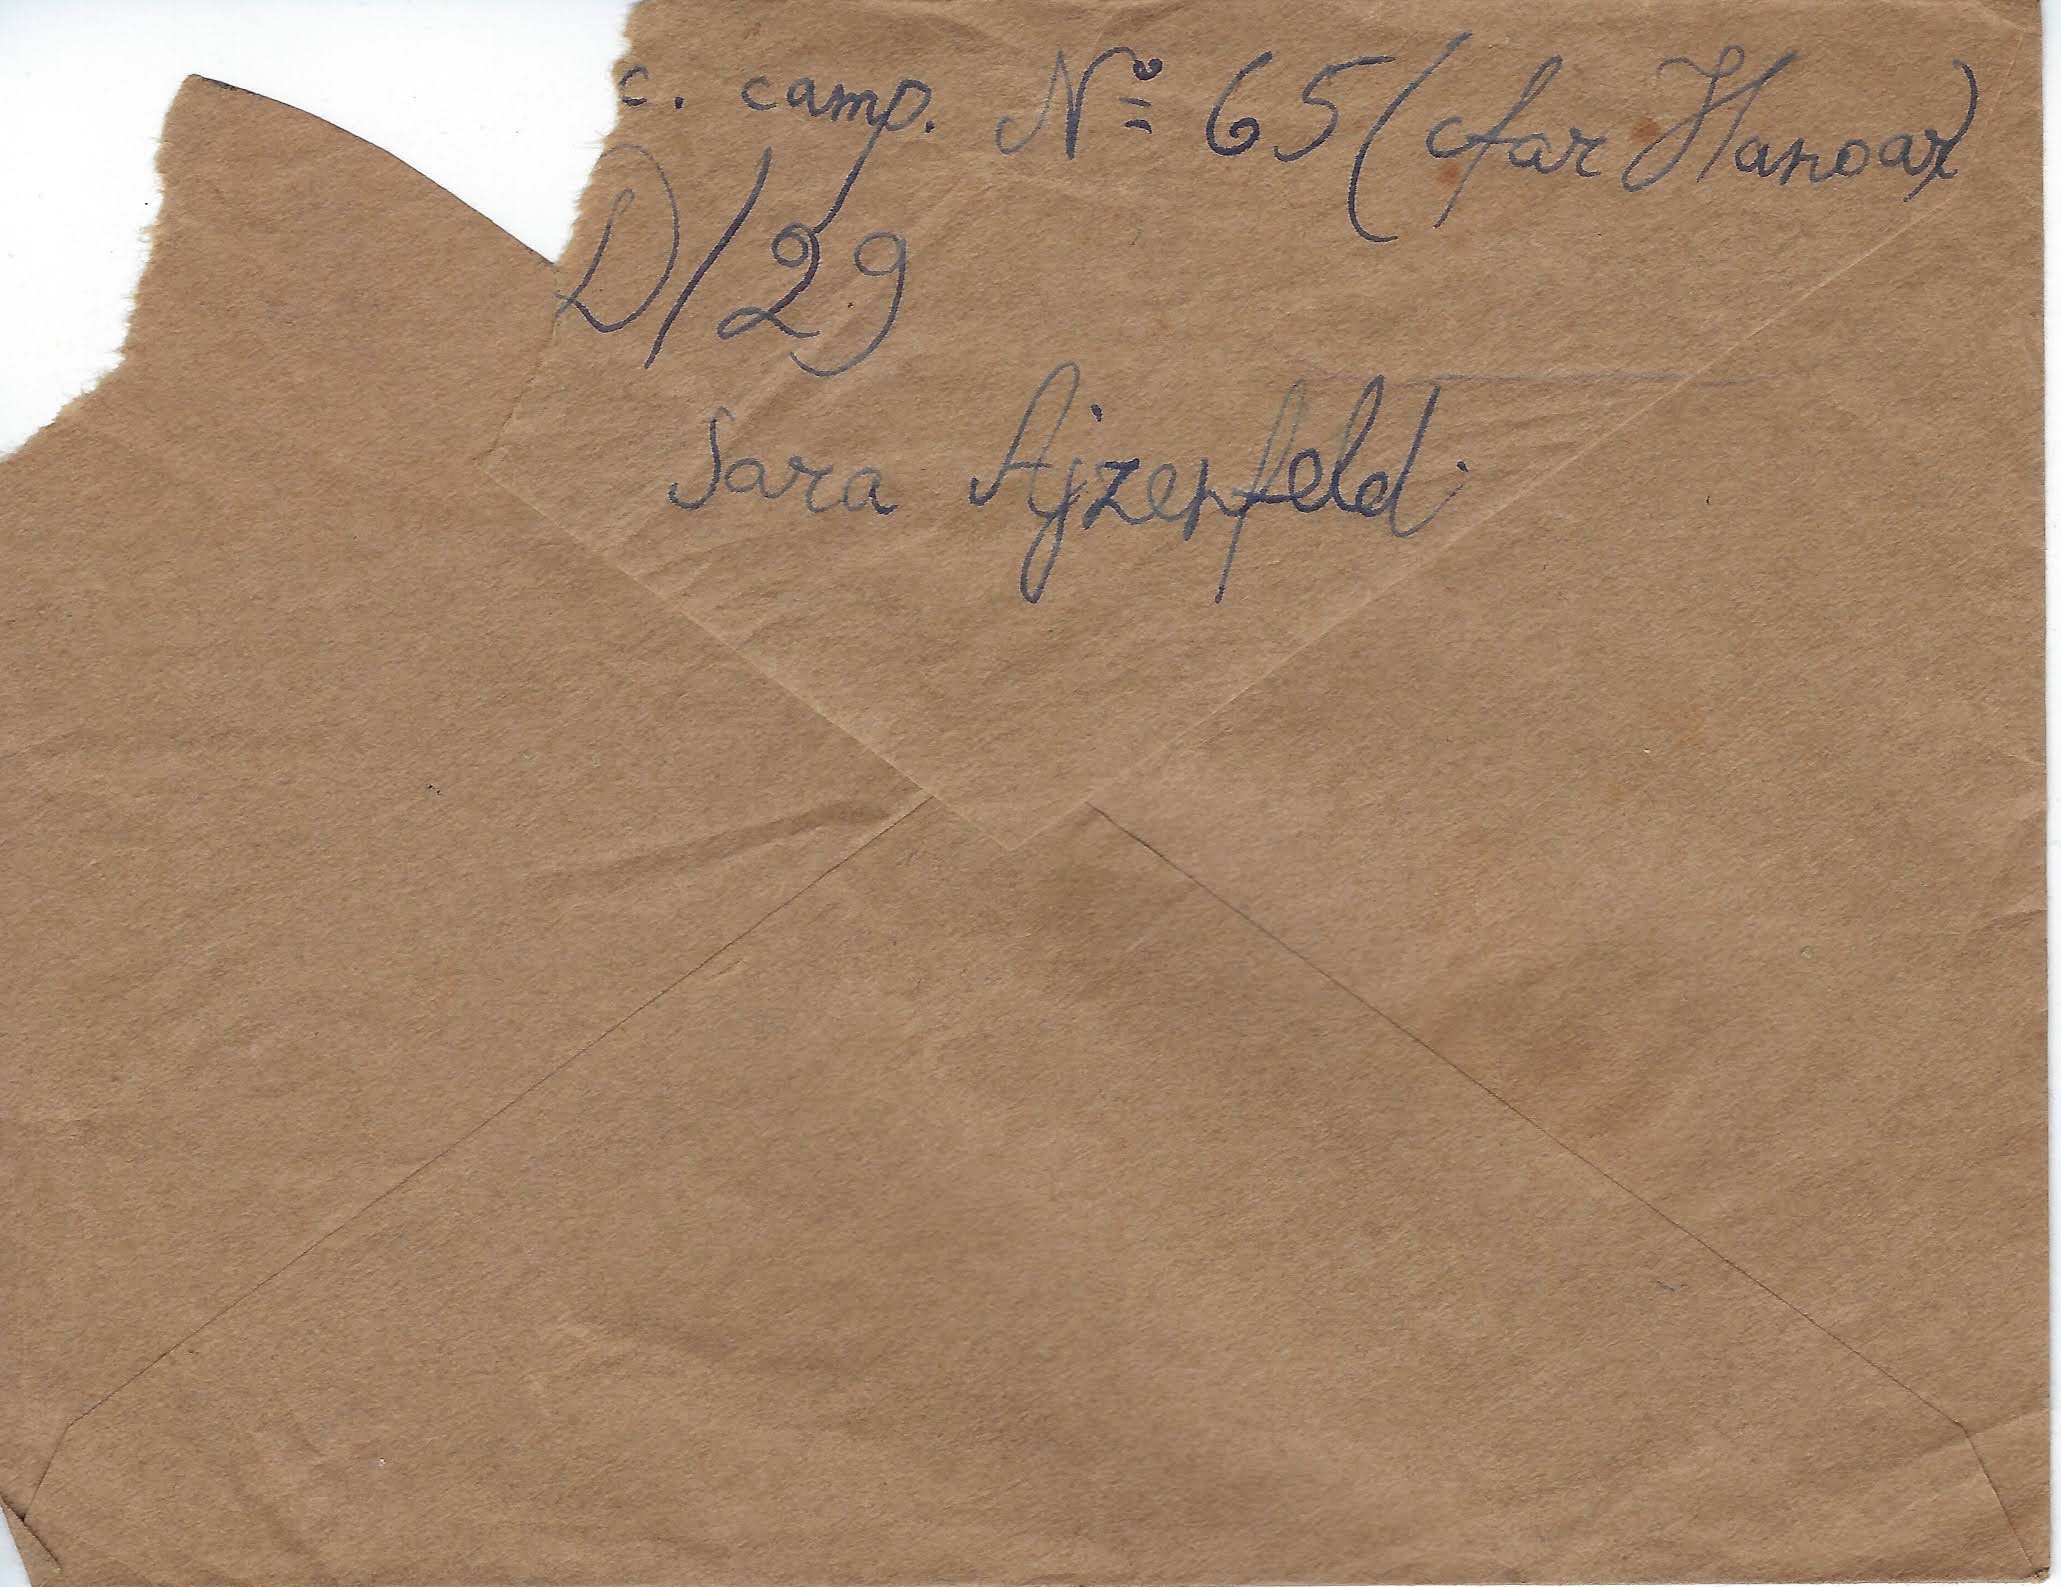 c. camp. Nº 65 (cfar Hanoar)
D/29
Sara Ajzenfeld.